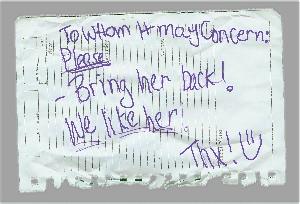 To Whom It may Concern:
Please
- Bring her back!
We like her!
Thx!